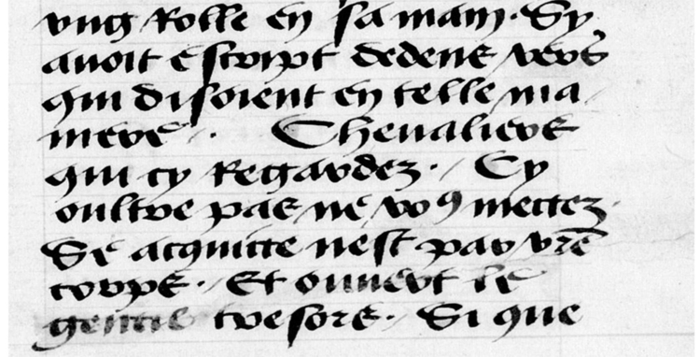 vng Rolle en sa main. Sy
auoit escript dedens vers
qui disoient en telle ma
niere. Cheualiers
qui cy Regardez. Cy
oultre pas ne voꝯ mettez.
Se acquitte nest par vr̃e
corps. Et ouuert le
gentil tresore. Si que